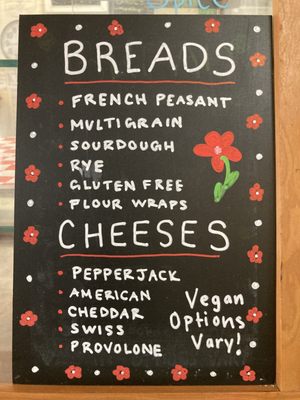 BREADS
• FRENCH PEASANT
• MULTIGRAIN
• SOURDOUGH
• RYE
• GLUTEN FREE
• FLOUR WRAPS
CHEESES
• PEPPERJACK
• AMERICAN
• CHEDDAR
• SWISS
• PROVOLONE
Vegan
Options
Vary!